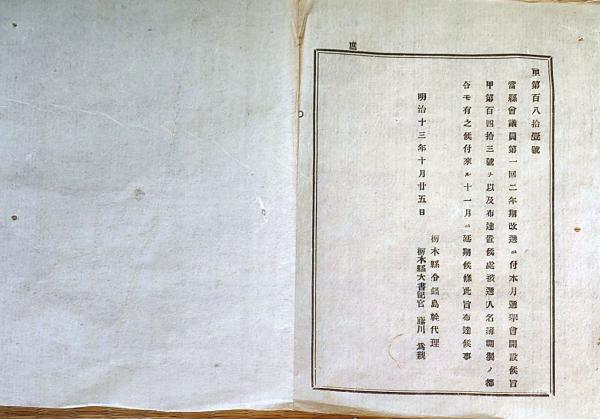 甲第百八拾壹號
當縣會議員第一回二年期改選ニ付本月選擧會開設候旨
甲第百四拾三號ヲ以及布達置候處被選人名簿調製ノ都
合モ有之候付來ル十一月ニ延期候條此旨布達候事
明治十三年十月廿五日
栃木縣令鍋島幹代理
栃木縣大書記官 藤川爲親